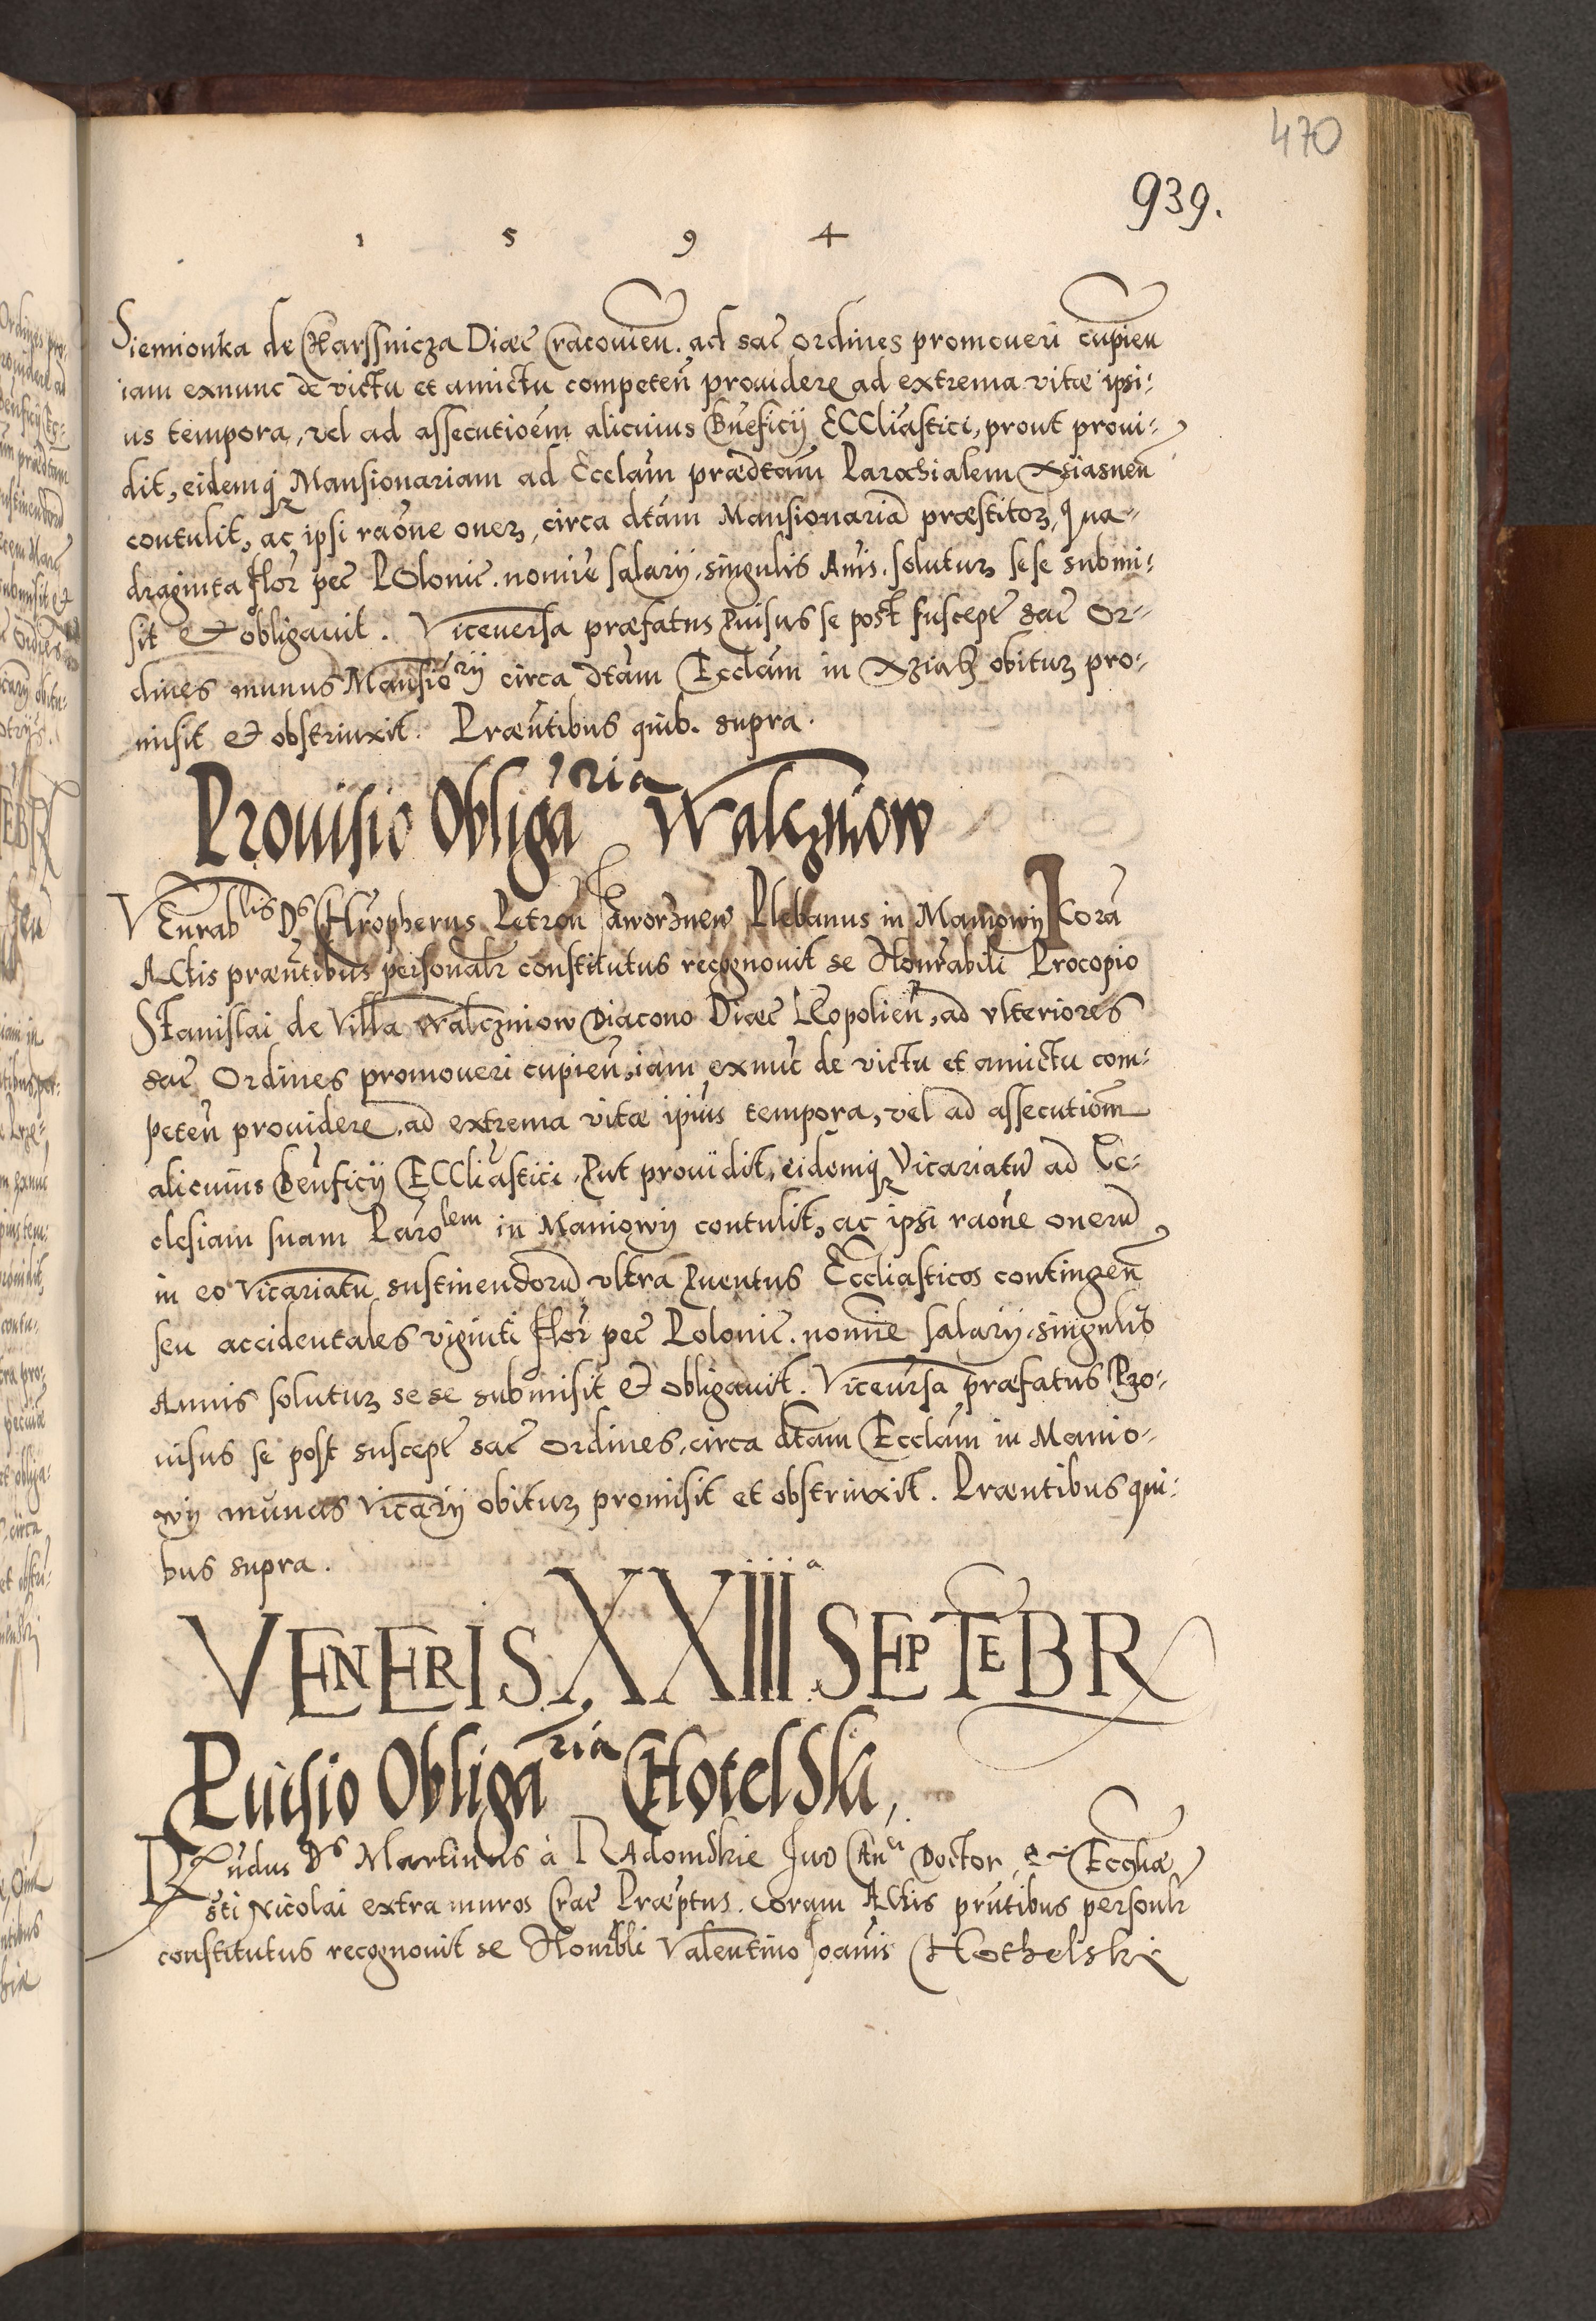 470
939.
1 5 9 4
Siemionka de Charssnicza Diœc Cracouien. ad sac ordines promoueri cupien
iam exnunc de victu et amictu competen̄ prouidere ad extrema vitæ ipsi-
us tempora, vel ad assecutioēm alicuius Bn̄eficij ECCliāstici, prout proui-
dit, eidemq Mansionariam ad Ecclām prædtām Parochialem Xsiasnen̄
contulit, ac ipsi raōne onerꝫ, circa dtām Mansionariā præstitorꝫ, Qua-
draginta flor pec POlonic. nomīe salarij, singulis Anīs. soluturꝫ sese submi-
sit et obligauit. Viceuersa præfatus Puisus se post suscept sac Or-
dines munus Mansiōrij circa dtām Ecclām in Xziąsz obiturꝫ pro-
misit et obstrinxit. Præn̄tibus quib. supra.
Prouisio Obligāria Walczniow
VEnrablis Ds CHropherus Petron Jaworznen Plebanus in Maniowij Corā
ACtis præn̄tibus personalr constitutus recognouit se Honrabili Procopio
STanislai de Villa Walczniow Diacono Diœc LEopolien̄, ad vlteriores
sac Ordines promoueri cupien̄, iam exnūc de victu et amictu com-
peten̄ prouidere, ad extrema vitæ ipīus tempora, vel ad assecutiōm
alicuius Ben̄ficij ECCliāstici, Put prouidit, eidemq Vicariatū ad Ec-
clesiam suam Parōlem in Maniowij contulit, ac ipsi raōne onerū
in eo Vicariatu sustinendorū vltra Puentus Eccliasticos contingen̄
seu accidentales viginti flor pec Polonic. nomīe salarij, singulis
Annis soluturꝫ sese submisit et obligauit. Viceursa præfatus Pro-
uisus se post suscept sac ordines, circa dtām Ecclām in Manio-
wij munus Vicarij obiturꝫ promisit et obstrinxit. Præntibus qui-
bus supra.
VENERIS XXIIIa SEPTEBR
Puisio Obligāria CHotelski,
REūdus Ds Martinus à RAdomskie Juo Doctor, Ecclīæ
Sti Nicolai extra muros Crac Præptus. Coram ACtis prn̄tibus personlr
constitutus recognouit se Honrbli Valentino Joanīs CHothelski